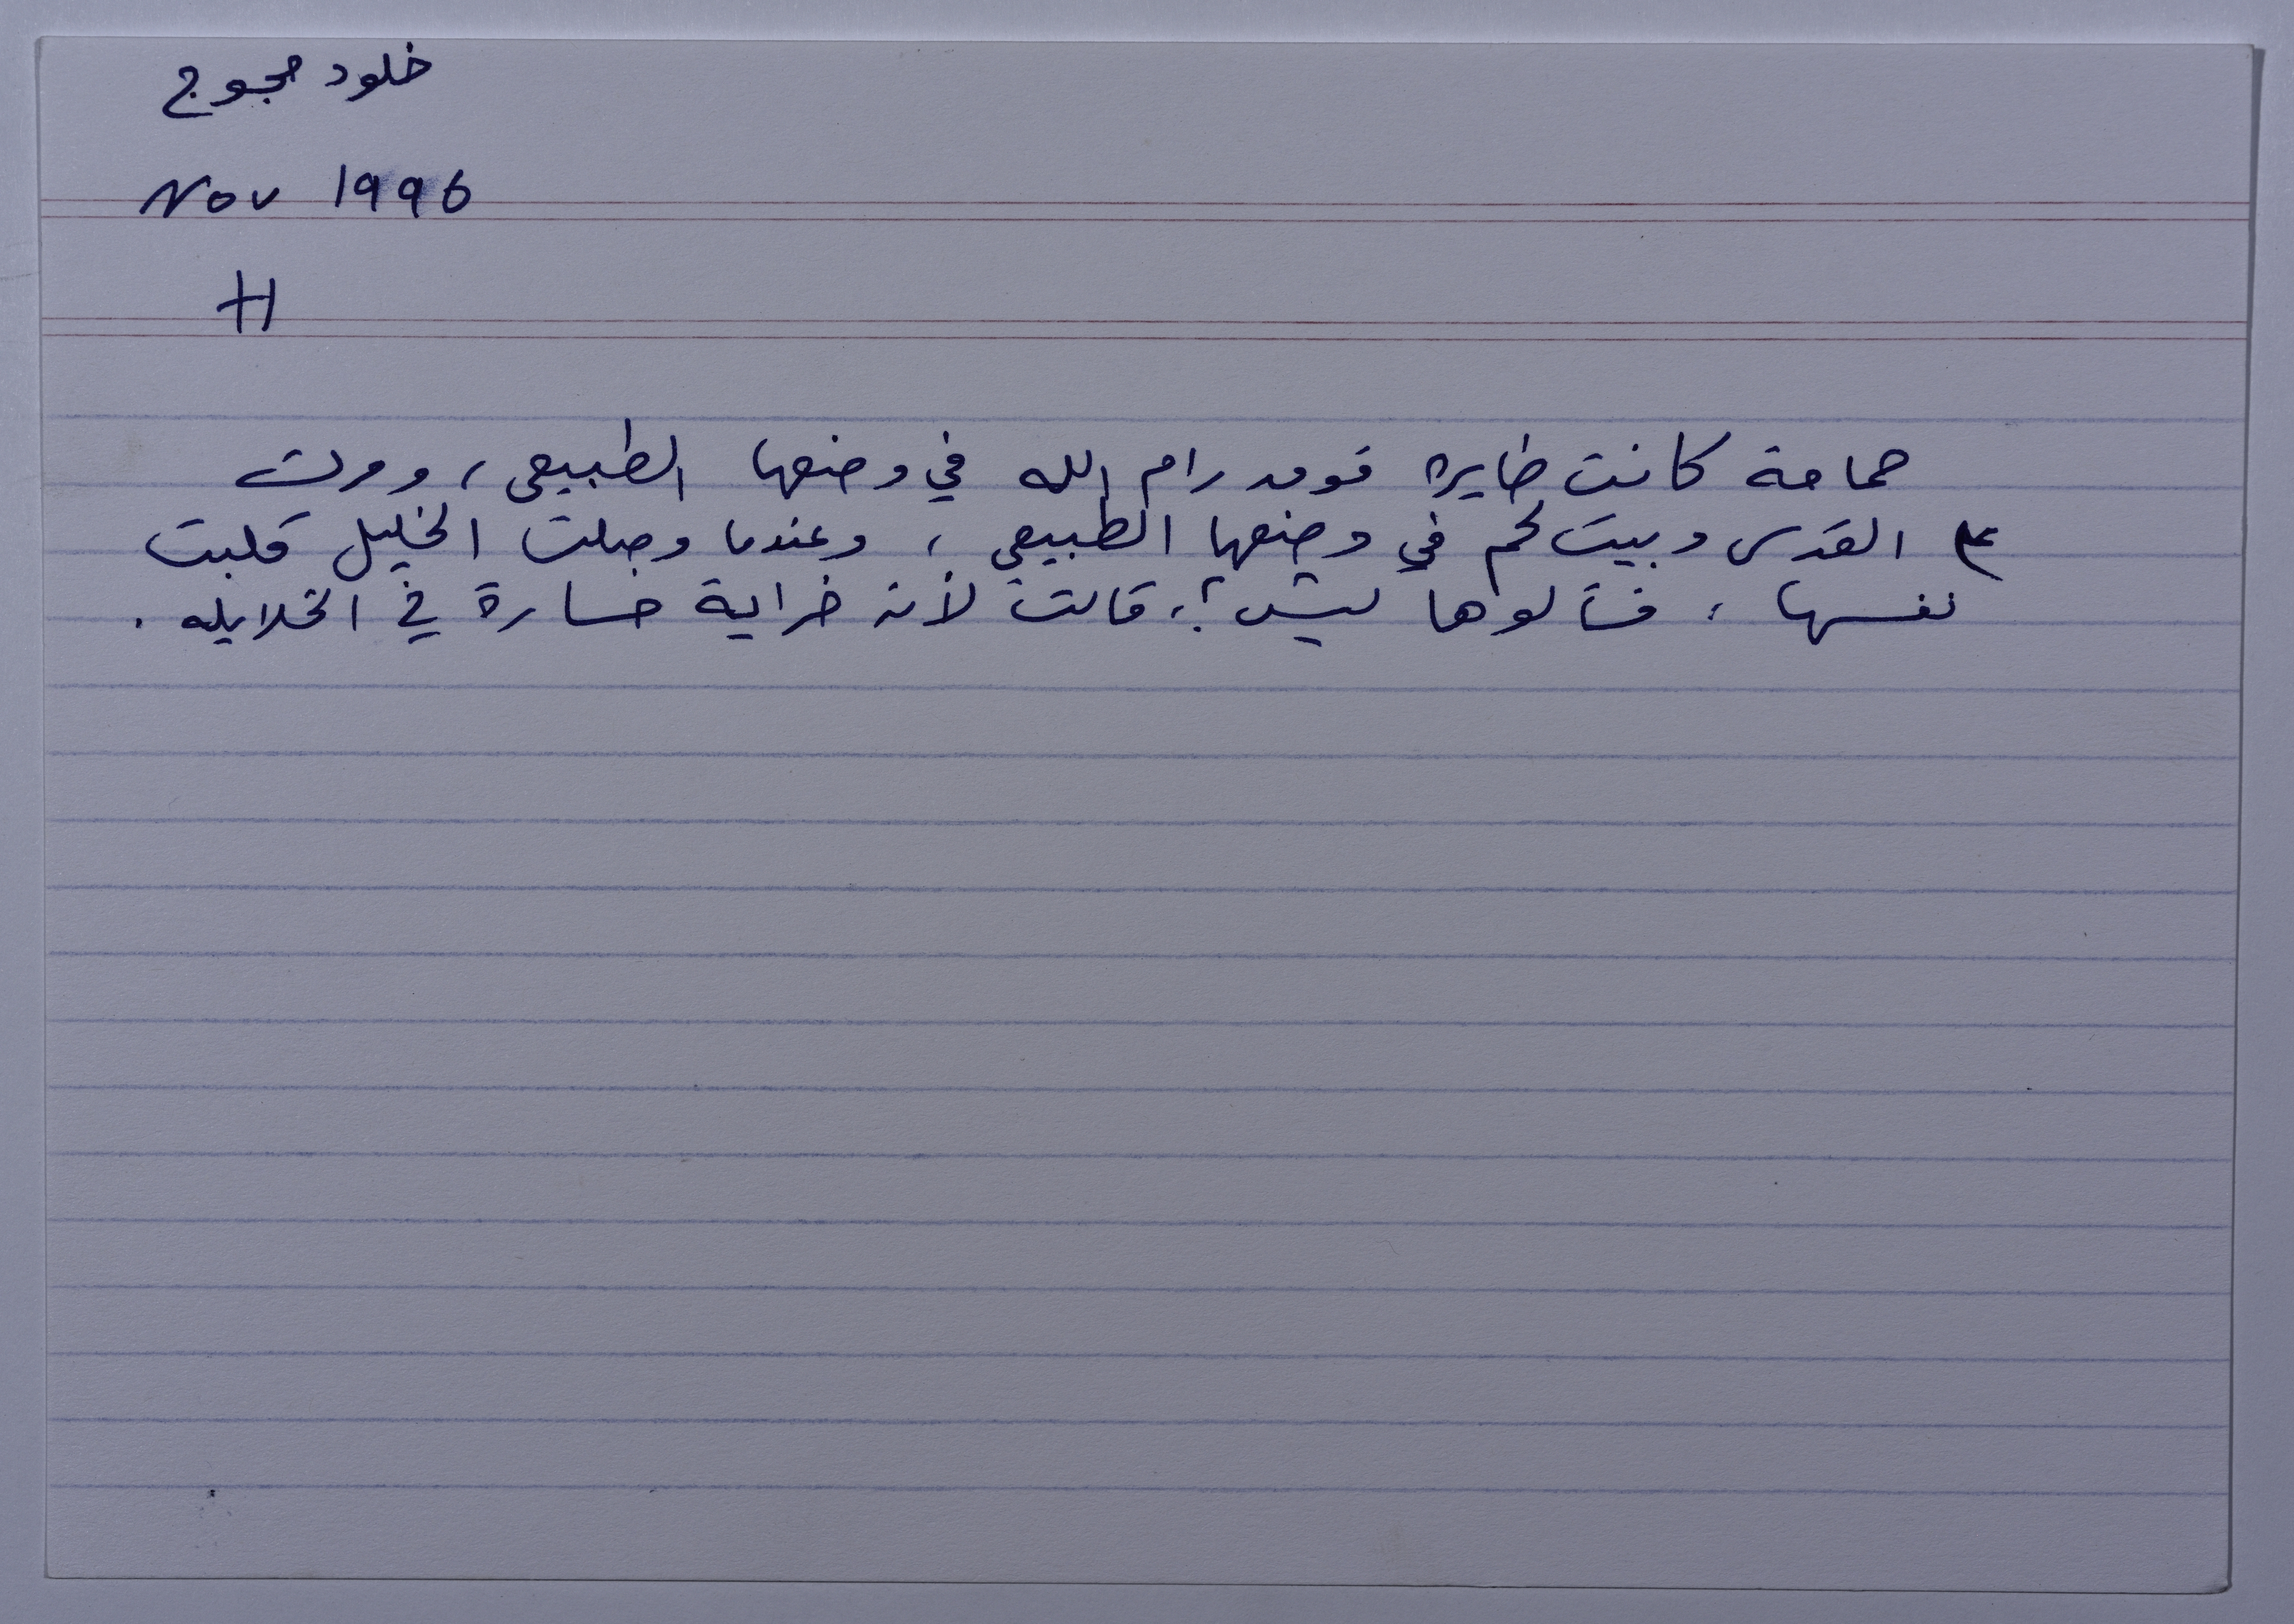 خلود محجوج
Nov 1996
H
حمامة كانت طايره فوق رام الله في وضعها الطبيعي، ومرت
ع القدس وبيت لحم في وضعها الطبيعي، وعندما وصلت الخليل قلبت
نفسها، فسألوها ليش؟، قالت لأنه خراية خسارة في الخلايله.